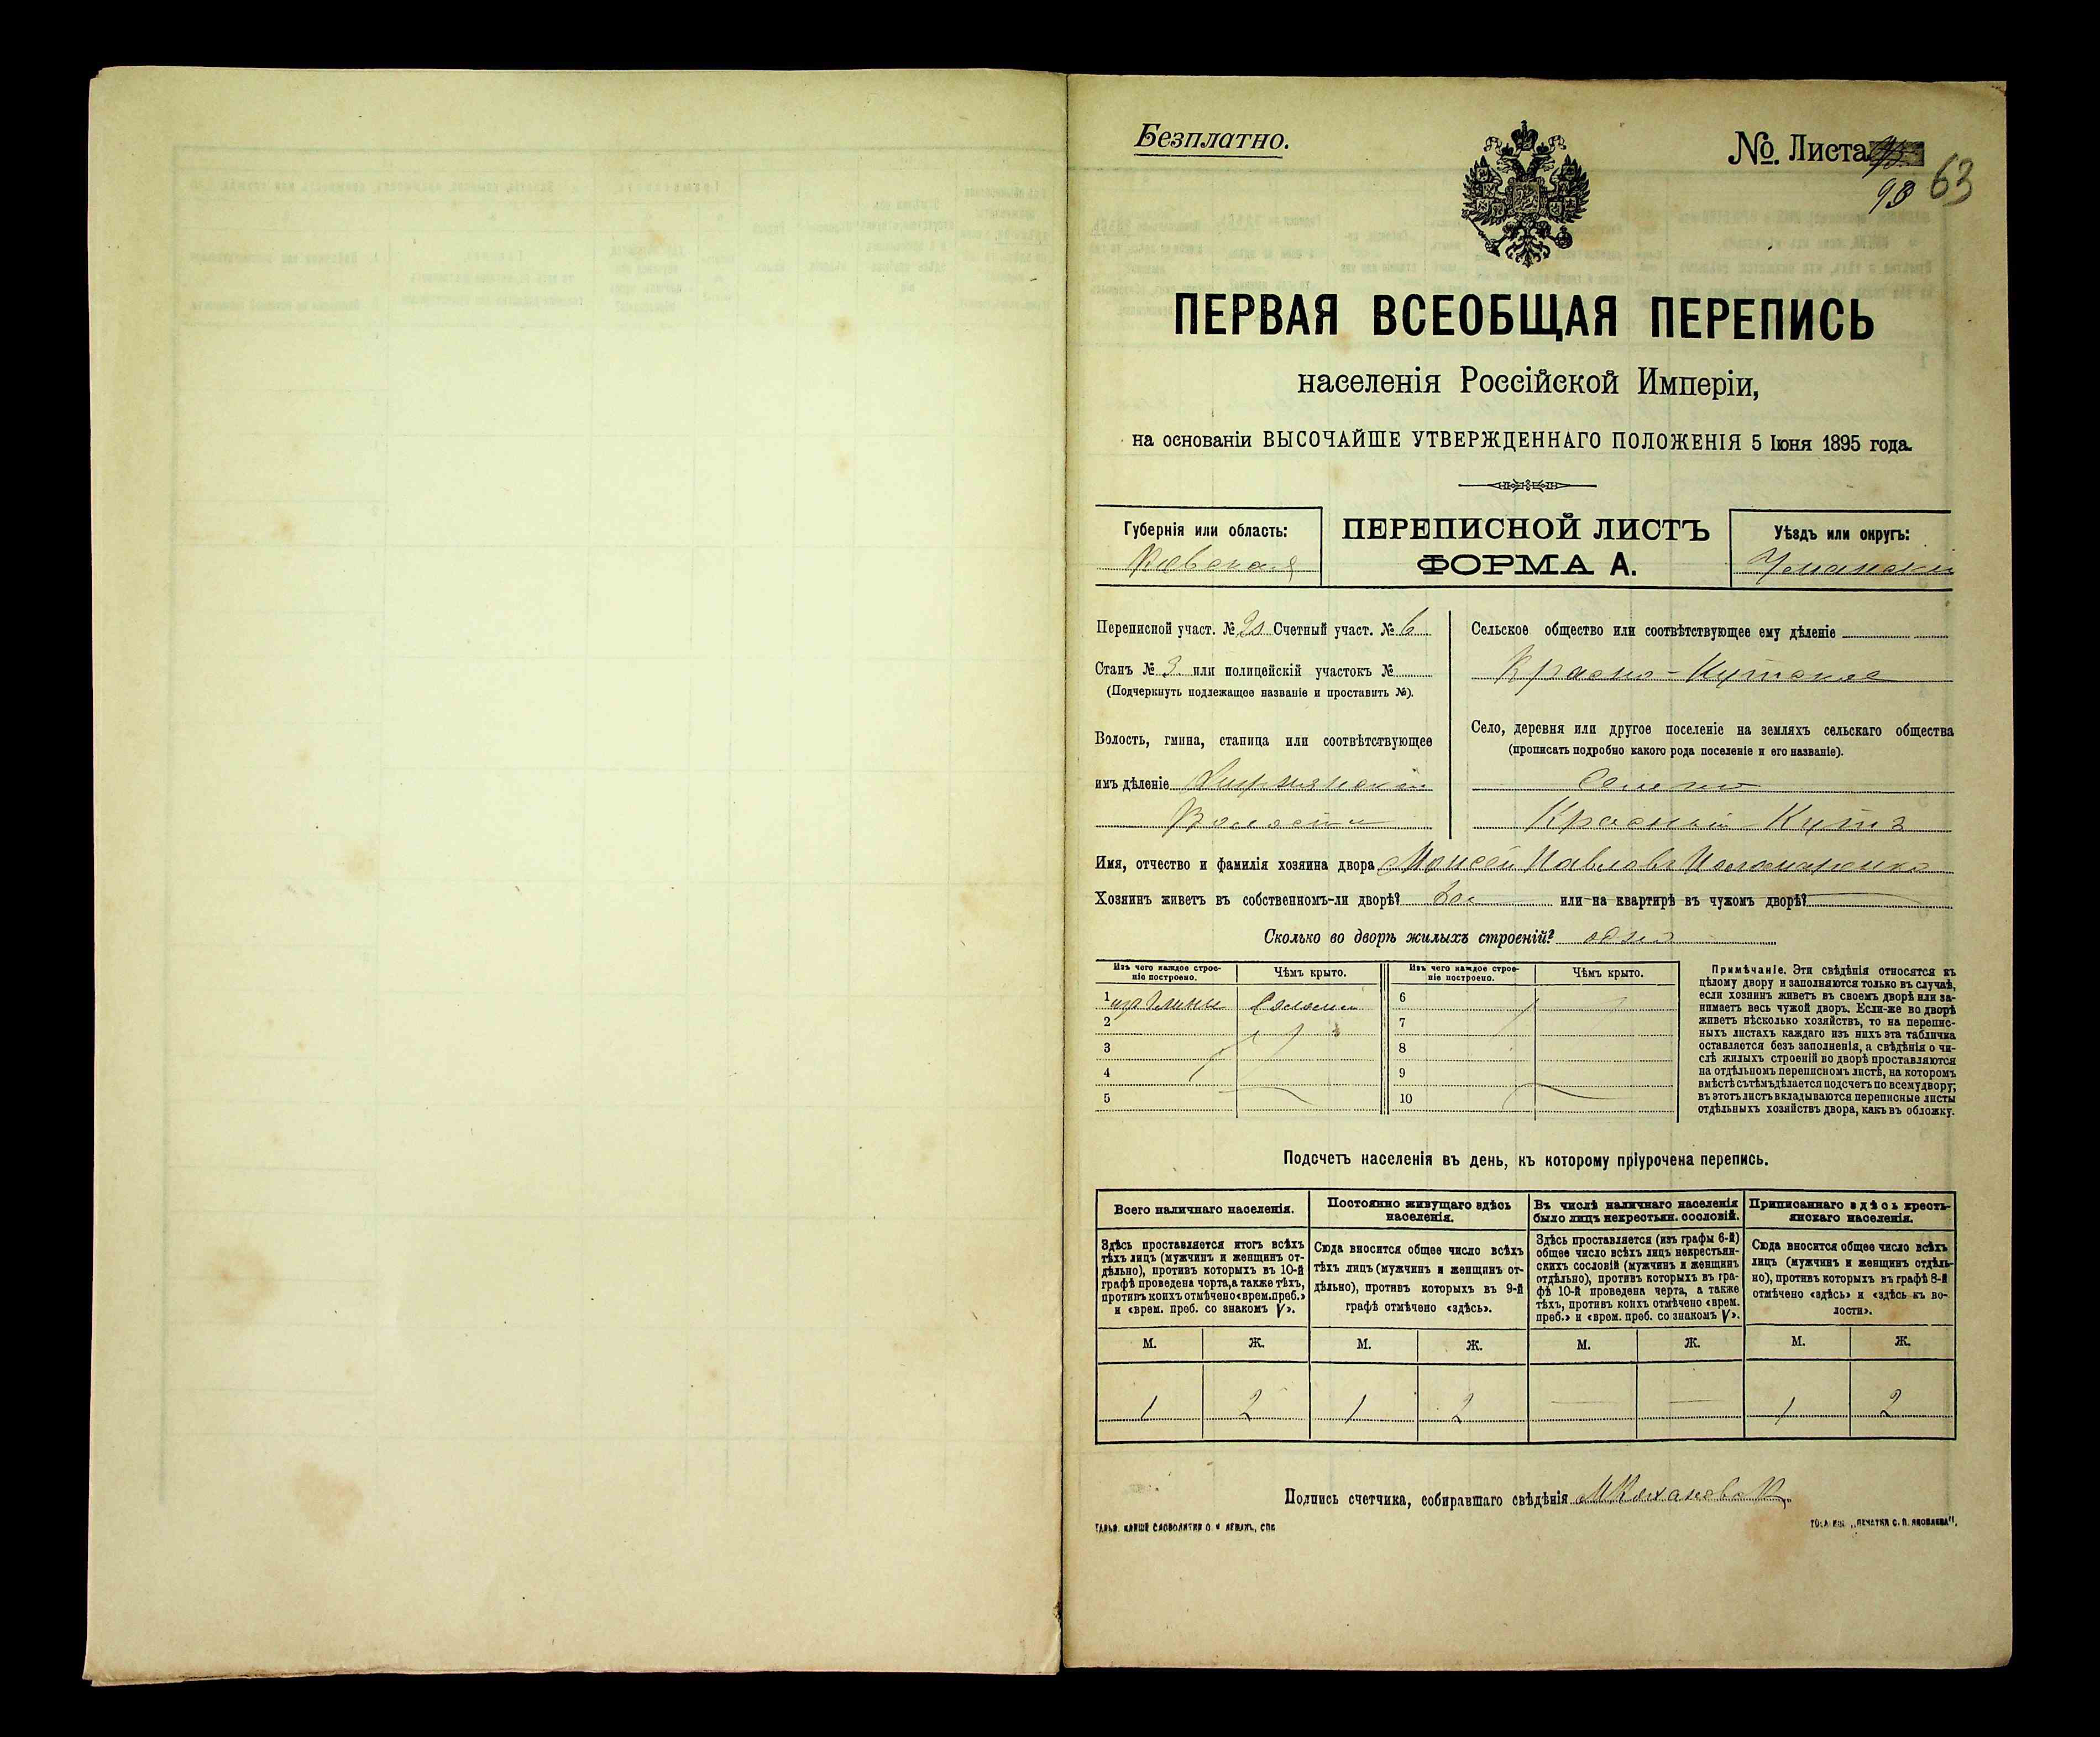 Безплатно.
№. Листа
93 63
ПЕРВАЯ ВСЕОБЩАЯ ПЕРЕПИСЬ
населенія Россійской Имперіи,
на основаніи ВЫСОЧАЙШЕ УТВЕРЖДЕННАГО ПОЛОЖЕНІЯ 5 Іюня 1895 года.
Губернія или область:
Кіевская
ПЕРЕПИСНОЙ ЛИСТЪ
ФОРМА А.
Уѣздъ или округъ:
Уманскій
Переписной участ. № Счетный участ. № 6
Станъ № 3 или полицейскій участокъ №
(Подчеркнуть подлежащее названіе и проставить №).
Волость, гмина, станица или соотвѣтствующее
имъ дѣленіе
Волости
Сельское общество или соотвѣтствующее ему дѣленіе
Красно-Кутское
Село, деревня или другое поселеніе на земляхъ сельскаго общества
(прописать подробно какого рода поселеніе и его названіе).
Село
Красный Кутъ
Имя, отчество и фамилія хозяина двора Моисей Павловъ Паламаренко
Хозяинъ живетъ въ собственномъ-ли дворѣ? Да или на квартирѣ въ чужомъ дворѣ?
Сколько во дворѣ жилыхъ строеній? одно
Изъ чего каждое строе-
ніе построено.
Чѣмъ крыто.
Изъ чего каждое строе-
ніе построено.
Чѣмъ крыто.
1 изъ глины Соломой 6
2 7
3 8
4 9
5 10
Примѣчаніе. Эти свѣдѣнія относятся къ
цѣлому двору и заполняются только въ случаѣ,
если хозяинъ живетъ въ своемъ дворѣ или за-
нимаетъ весь чужой дворъ. Если-же во дворѣ
живетъ нѣсколько хозяйствъ, то на перепис-
ныхъ листахъ каждаго изъ нихъ эта табличка
оставляется безъ заполненія, а свѣдѣнія о чи-
слѣ жилыхъ строеній во дворѣ проставляются
на отдѣльномъ переписномъ листѣ, на которомъ
вмѣстѣ съ тѣмъ дѣлается подсчетъ по всему двору;
въ этотъ листъ вкладываются переписные листы
отдѣльныхъ хозяйствъ двора, какъ въ обложку.
Подсчетъ населенія въ день, къ которому пріурочена перепись.
Всего наличнаго населенія.
Здѣсь проставляется итогъ всѣхъ
тѣхъ лицъ (мужчинъ и женщинъ от-
дѣльно), противъ которыхъ въ 10-й
графѣ проведена черта, а также тѣхъ,
противъ коихъ отмѣчено «врем. преб.»
и «врем. преб. со знакомъ V».
Постоянно живущаго здѣсь
населенія.
Сюда вносится общее число всѣхъ
тѣхъ лицъ (мужчинъ и женщинъ от-
дѣльно), противъ которыхъ въ 9-й
графѣ отмѣчено «здѣсь».
Въ числѣ наличнаго населенія
было лицъ некрестьян. сословій.
Здѣсь проставляется (изъ графы 6-й)
общее число всѣхъ лицъ некрестьян-
скихъ сословій (мужчинъ и женщинъ
отдѣльно), противъ которыхъ въ гра-
фѣ 10-й проведена черта, а также
тѣхъ, противъ коихъ отмѣчено «врем.
преб.» и «врем. преб. со знакомъ V».
Приписаннаго здѣсь кресть-
янскаго населенія.
Сюда вносится общее число всѣхъ
лицъ (мужчинъ и женщинъ отдѣль-
но), противъ которыхъ въ графѣ 8-й
отмѣчено «здѣсь» и «здѣсь къ во-
лости».
М. Ж. М. Ж. М. Ж. М. Ж.
1 2 1 2 — — 1 2
Подпись счетчика, собиравшаго свѣдѣнія